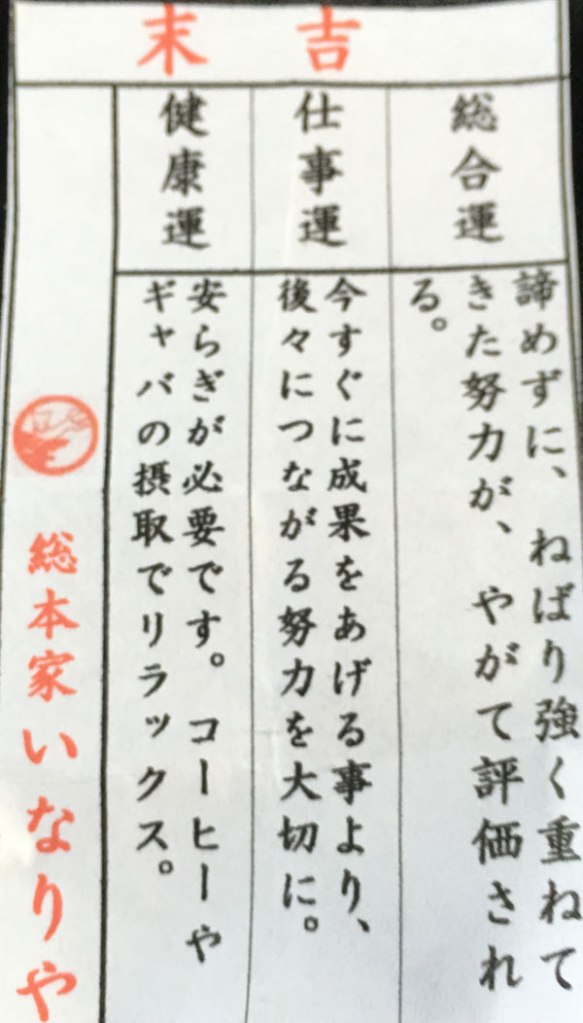 末吉
総合運
諦めずに、ねばり強く重ねて
きた努力が、やがて評価され
る。
仕事運
今すぐに成果をあげる事より、
後々につながる努力を大切に。
健康運
安らぎが必要です。コーヒーや
ギャバの摂取でリラックス。
総本家いなりや